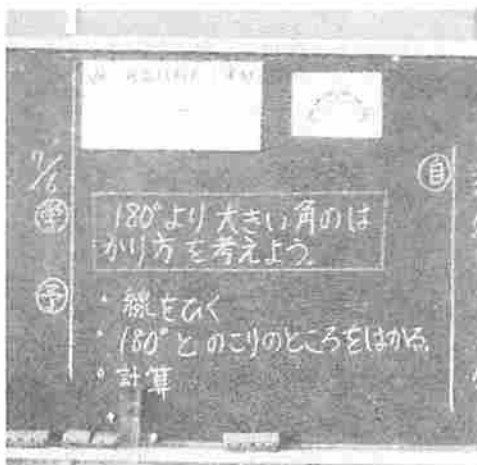 7/6
学
180°より大きい角のは
かり方を考えよう。
予
・線をひく
・180°とのこりのところをはかる。
・計算
・
自